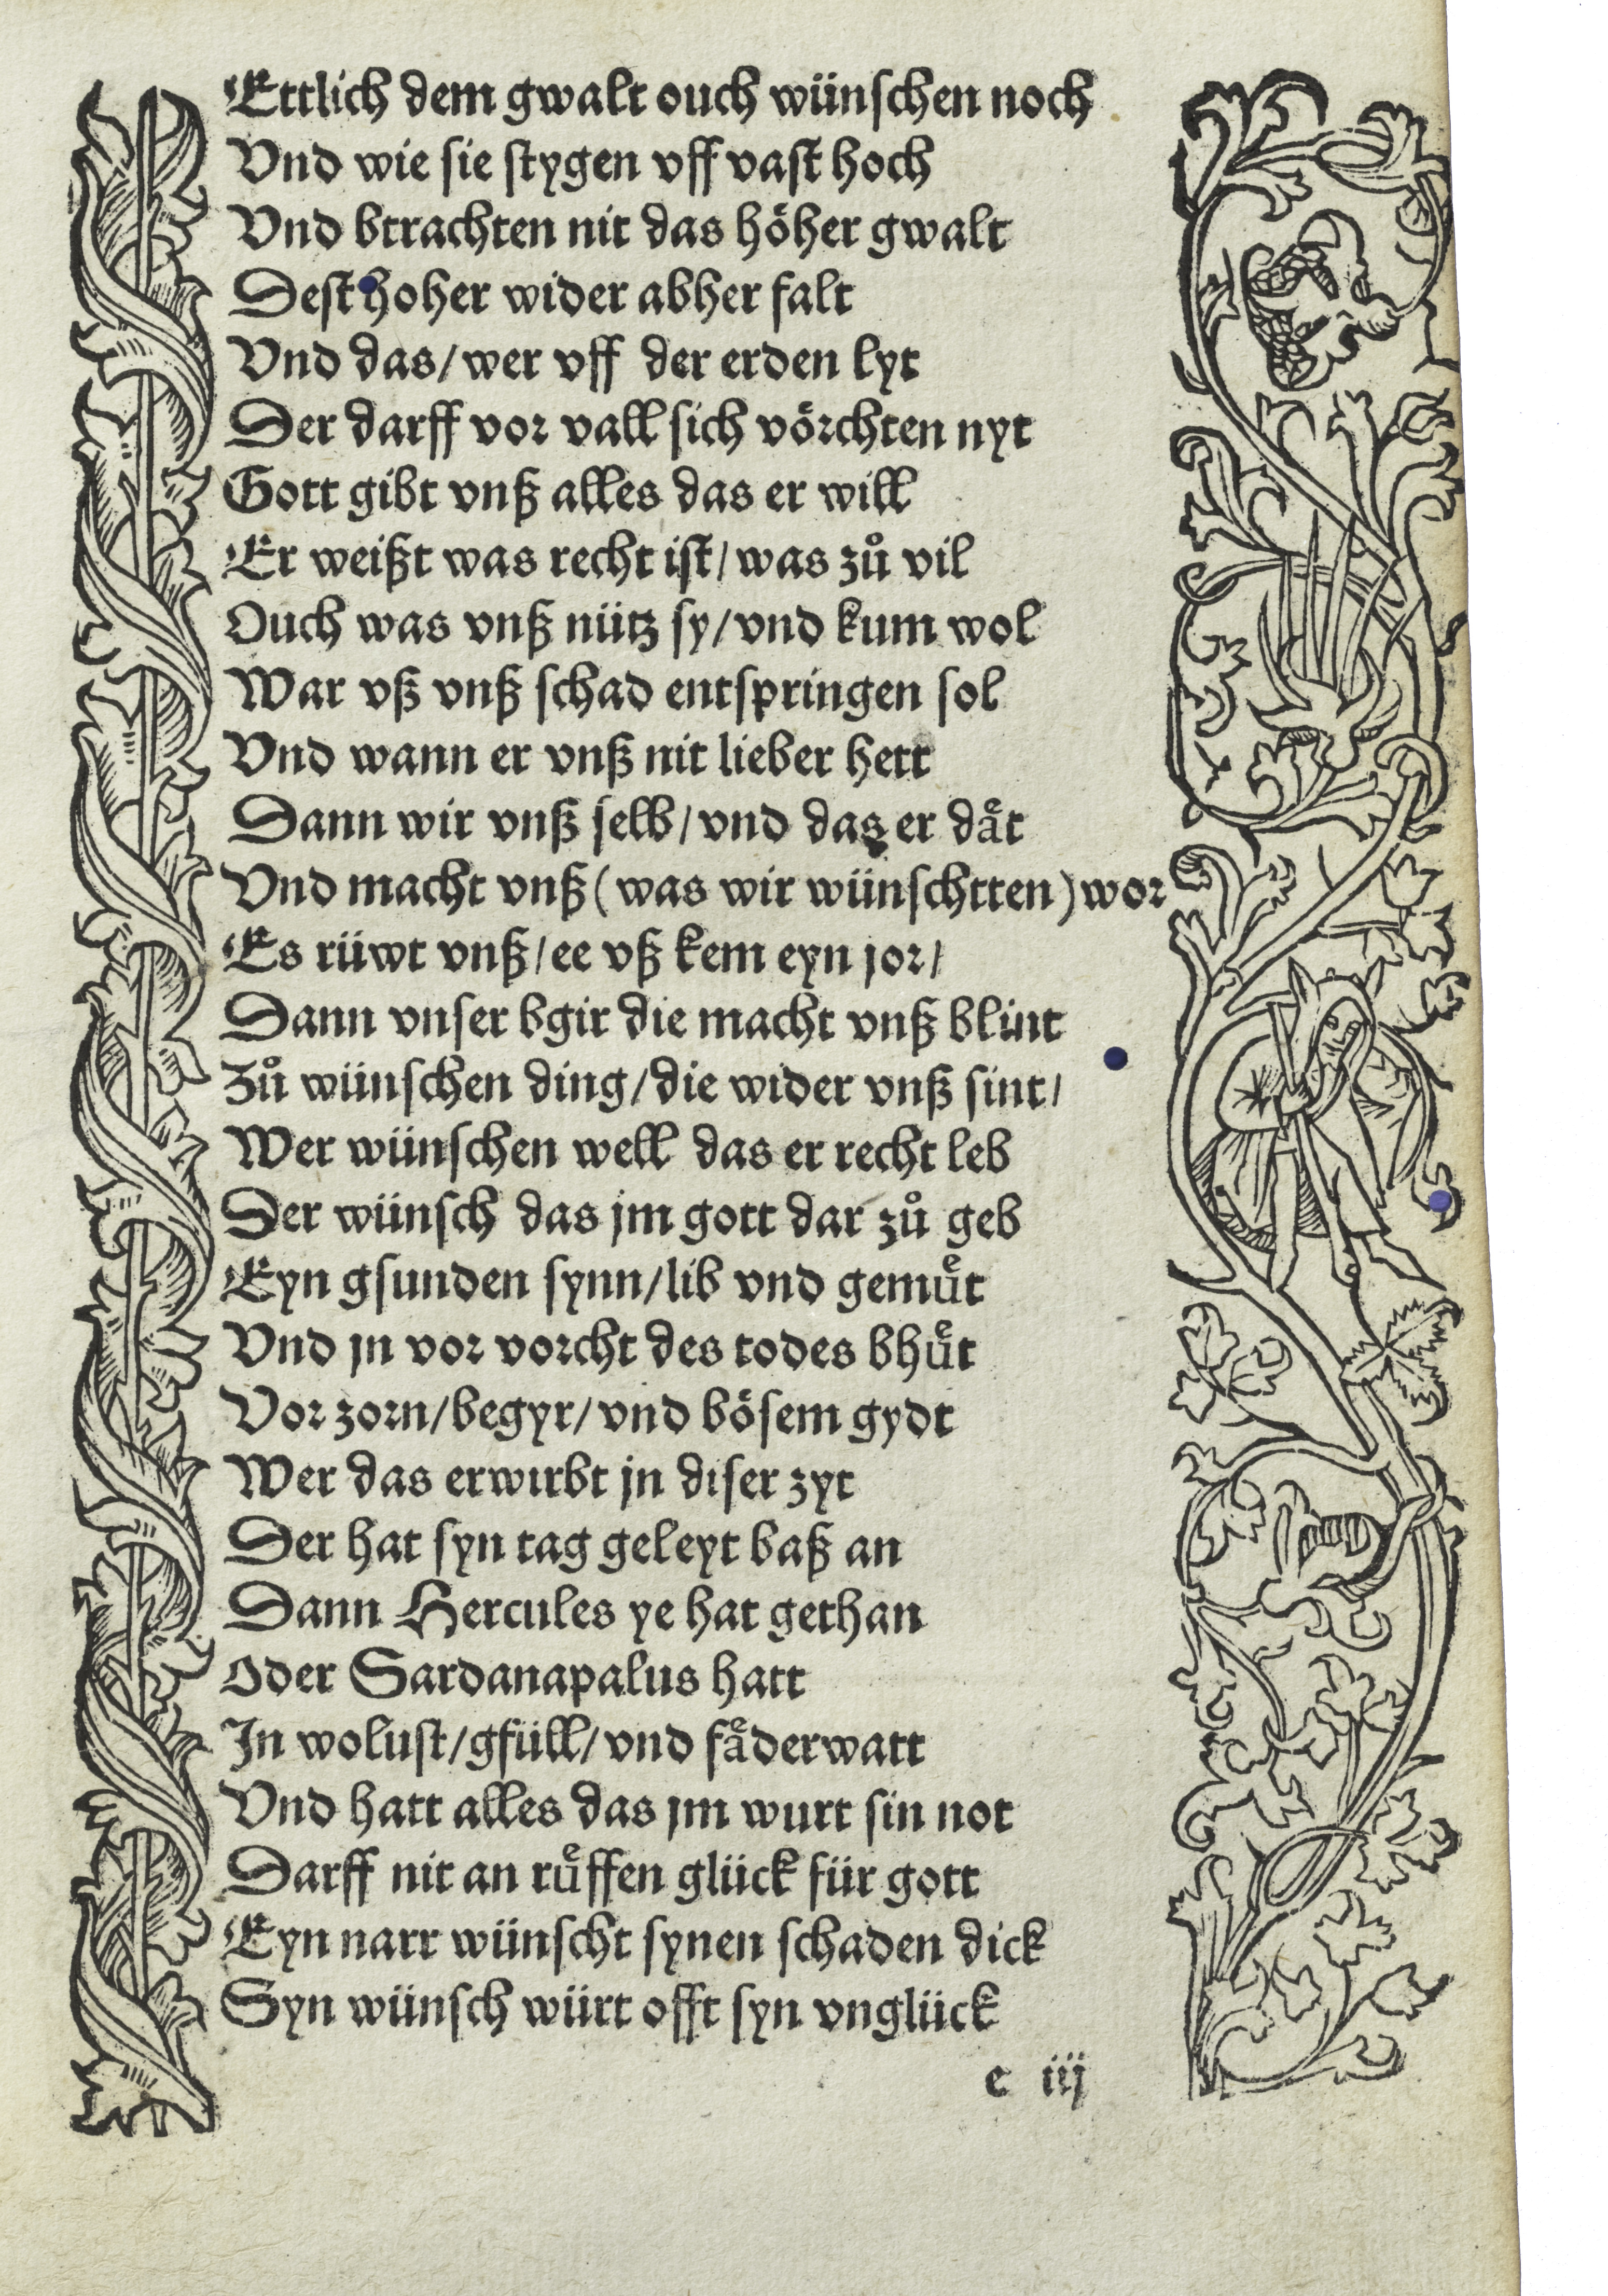 Ettlich dem gwalt ouch wünschen noch
Vnd wie sie stygen vff vast hoch
Vnd btrachten nit das höher gwalt
Dest hoher wider abher falt
Vnd das/wer vff der erden lyt
Der darff vor vall sich vörchten nyt
Gott gibt vnß alles das er will
Er weißt was recht ist/was zů vil
Ouch was vnß nütz sy/vnd kum wol
War vß vnß schad entspringen sol
Vnd wann er vnß nit lieber hett
Dann wir vnß selb/vnd das er daͤt
Vnd macht vnß (was wir wünschtten) wor
Es rüwt vnß/ee vß kem eyn jor/
Dann vnser bgir die macht vnß blint
Zů wünschen ding/die wider vnß sint/
Wer wünschen well das er recht leb
Der wünsch das jm gott dar zů geb
Eyn gsunden synn/lib vnd gemuͤt
Vnd jn vor vorcht des todes bhuͤt
Vor zorn/begyr/vnd bösem gydt
Wer das erwirbt jn diser zyt
Der hat syn tag geleyt baß an
Dann Hercules ye hat gethan
Oder Sardanapalus hatt
In wolust/gfüll/vnd faͤderwatt
Vnd hatt alles das jm wurt sin not
Darff nit an ruͤffen glück für gott
Eyn narr wünscht synen schaden dick
Syn wünsch würt offt syn vnglück
c iij